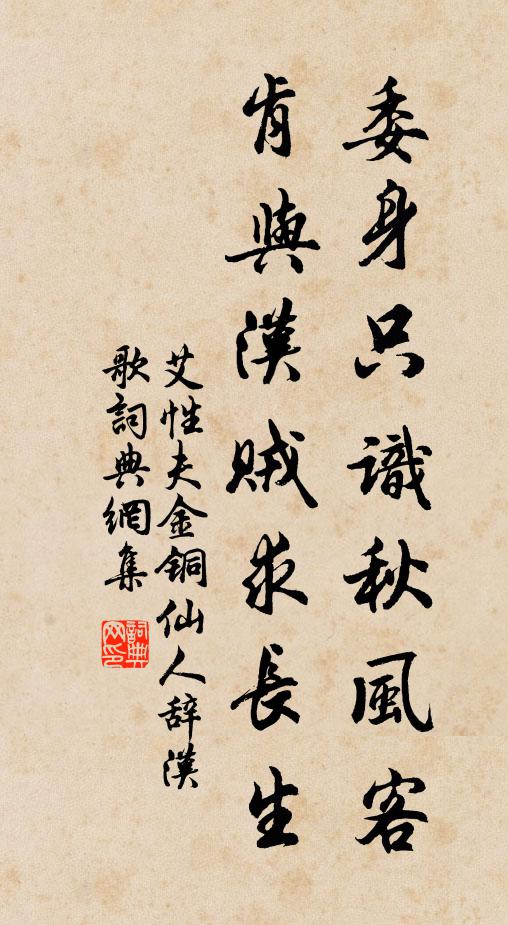 委身只識秋風客
肯與漢賊求長生
艾性夫金銅仙人辞漢
歌詞典網集
詞典網印